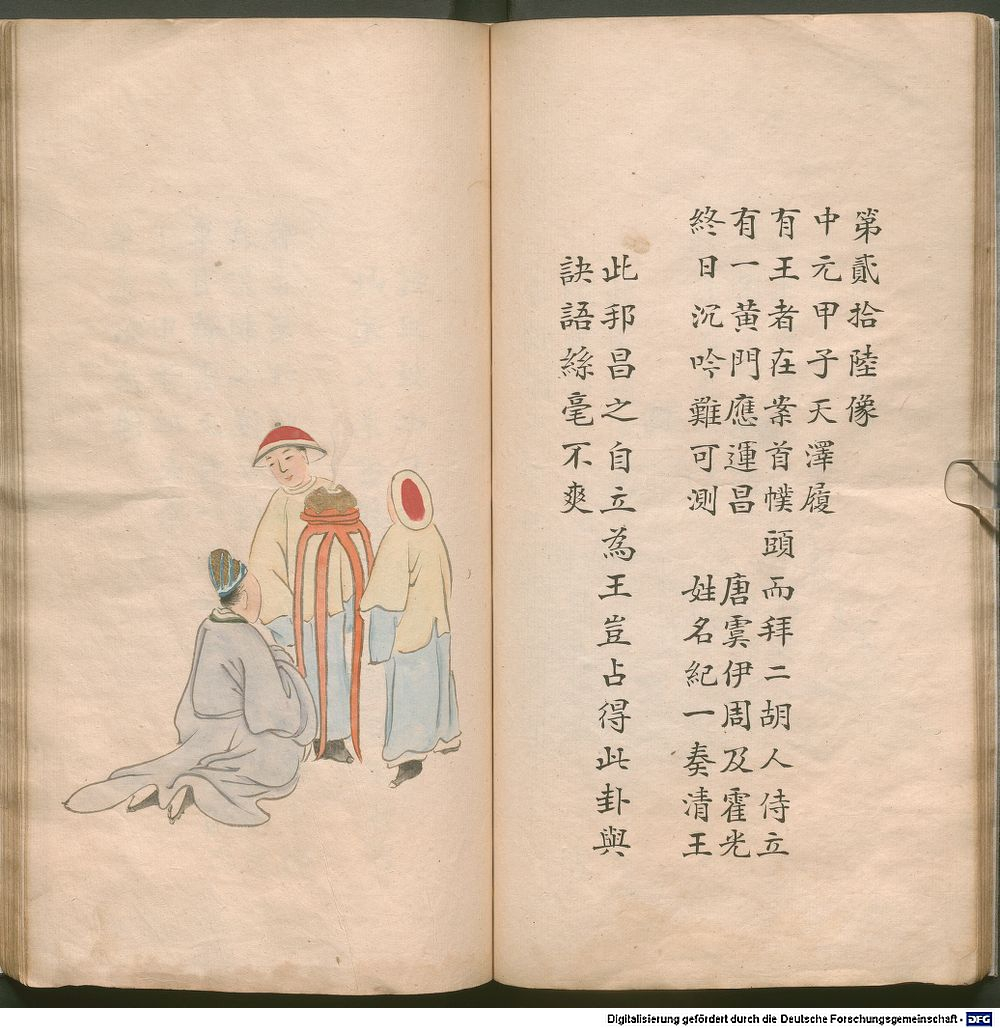 第貳拾陸像
中元甲子天澤履
有王者在案首幞頭而拜二胡人侍立
有一黃門應運昌 唐虞伊周及霍光
終日沉吟難可測 姓名紀一奏清王
此邦昌之自立為王豈占得此卦與
訣語絲毫不爽
Digitalisierung gefördert durch die Deutsche Forschungsgemeinschaft - DFG